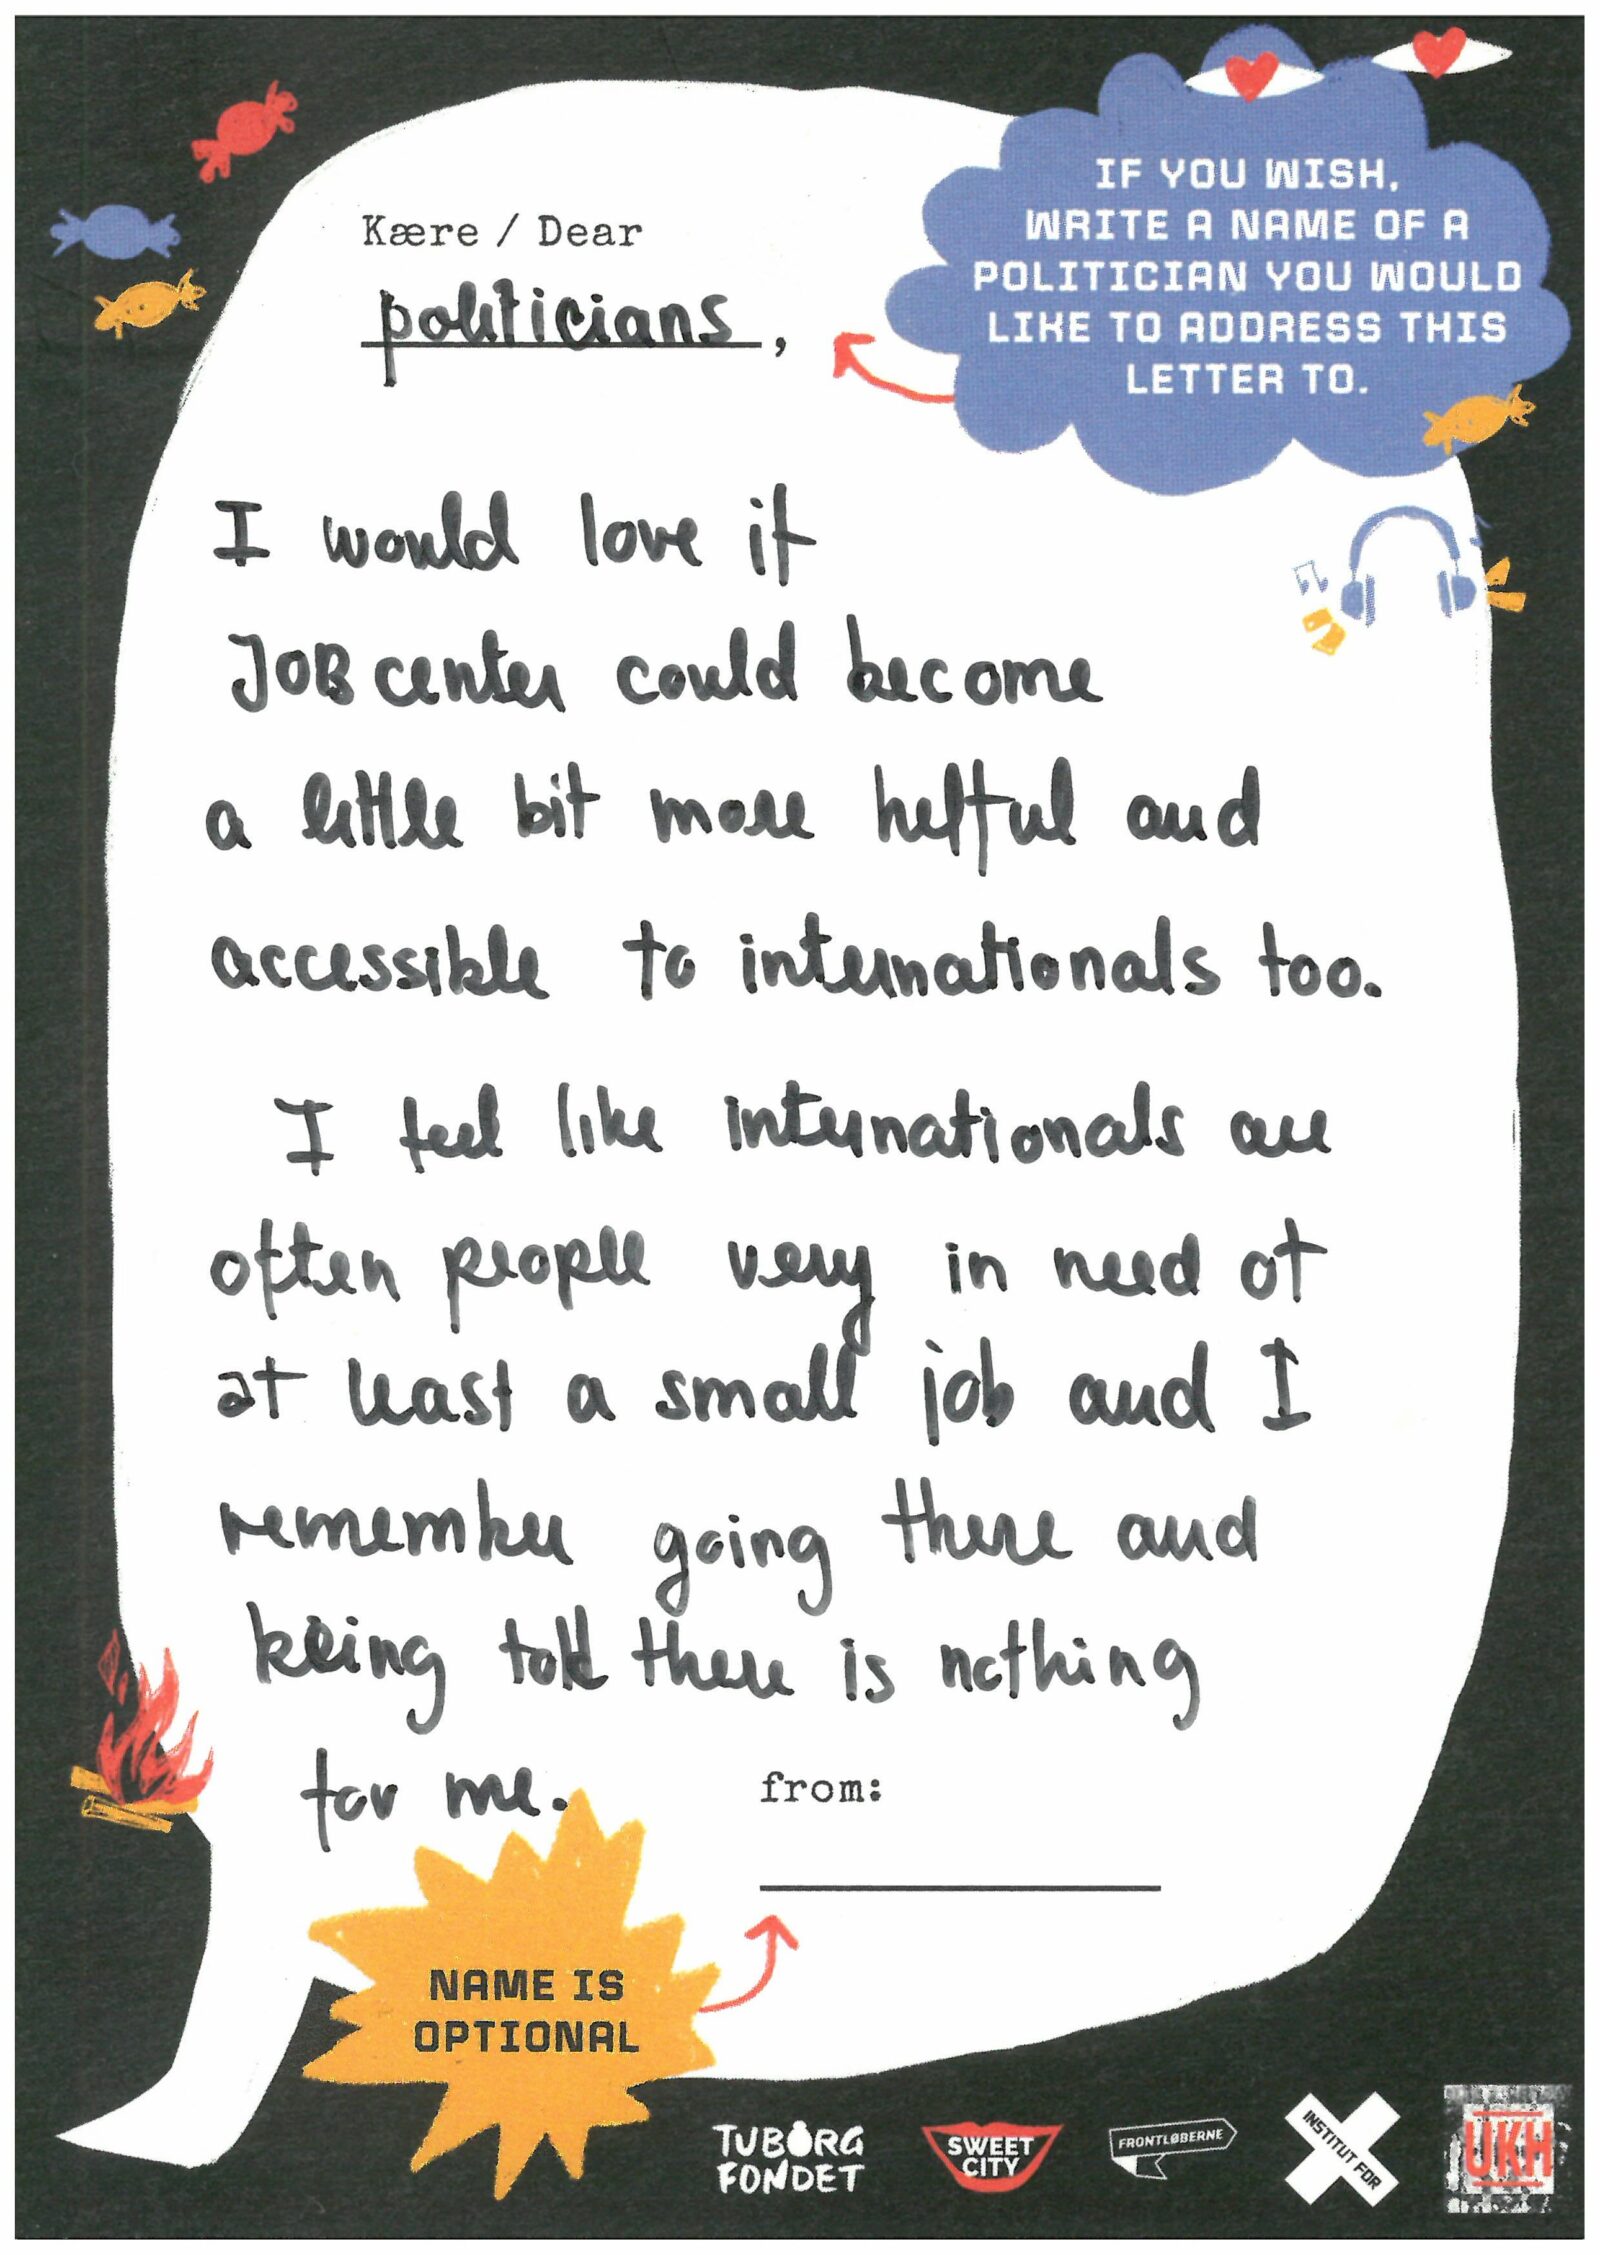 IF YOU WISH,
WRITE A NAME OF A
POLITICIAN YOU WOULD
LIKE TO ADDRESS THIS
LETTER TO.
Kære / Dear
politicians,
I would love if
JOB center could become
a little bit more helpful and
accessible to internationals too.
I feel like internationals are
often people very in need of
at least a small job and I
remember going there and
being told there is nothing
for me.
from:
NAME IS
OPTIONAL
TUBORG
FONDET
SWEET
CITY
FRONTLØBERNE
INSTITUT FOR
UKH